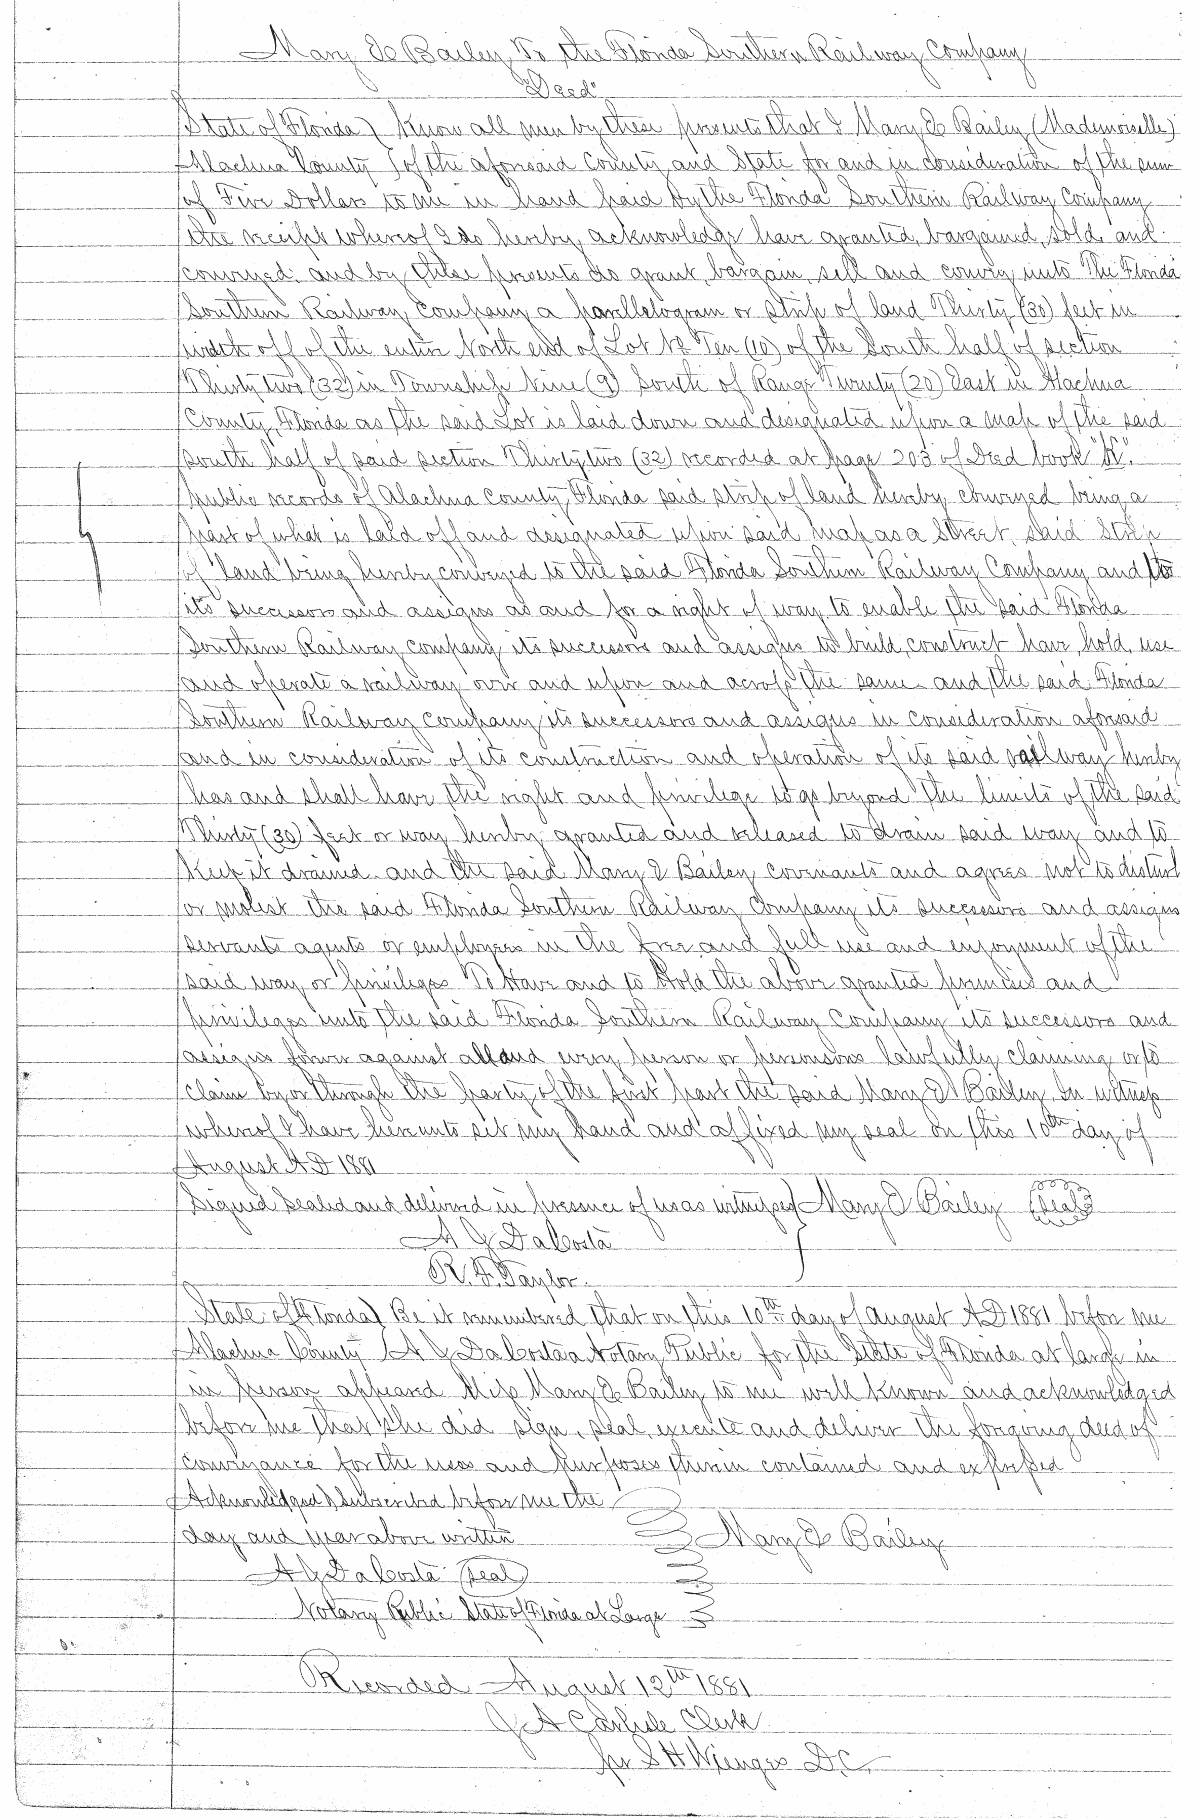 Mary E Bailey To the Florida Southern Railway Company
"Deed"
State of Florida) Know all men by these presents that I Mary E Bailey (Mademoiselle)
Alachua County } of the aforesaid County and State for and in consideration of the sum
of Five Dollars to me in hand paid by the Florida Southern Railway Company
the receipt whereof I do hereby, acknowledge have granted, bargained, sold, and
conveyed, and by these presents do grant, bargain, sell and convey unto The Florida
Southern Railway Company a parllelogram or strip of land Thirty (30) feet in
width off of the entire North end of Lot No Ten (10) of the South half of section
Thirty two (32) in Township Nine (9) South of Range Twenty (20) East in Alachua
County, Florida as the said Lot is laid down and designated upon a map of the said
south half of said section Thirty two (32) recorded at page 203 of Deed book
public records of Alachua County, Florida said strip of land hereby conveyed being a
part of what is laid off and designated upon said map as a Street, said Strip
of land being hereby conveyed to the said Florida Southern Railway Company and to
its successors and assigns as and for a right of way to enable the said Florida
Southern Railway Company, its successors and assigns to build, construct have, hold, use
and operate a railway over and upon and across the same and the said Florida
Southern Railway Company its successors and assigns in consideration aforesaid
and in consideration of its construction and operation of its said railway hereby
has and shall have the right and privilege to go beyond the limits of the said
Thirty (30) feet or way hereby granted and released to drain said way and to
Keep it drained and the said Mary E Bailey covenants and agrees not to disturb
or molest the said Florida Southern Railway Company its successors and assigns
servants agents or employees in the free and full use and enjoyment of the
said way or privileges To Have and to Hold the above granted premises and
privileges unto the said Florida Southern Railway Company its successors and
assigns forever against all and every person or persons lawfully claiming or to
claim by or through the party of the first part the said Mary E Bailey In witness
whereof I have hereunto set my hand and affixed my seal on this 10th day of
August A.D 1881
Signed Sealed and delivered in presence of us as witnesses } Mary E Bailey (Seal)
A J DaCosta
R. F. Taylor.
State of Florida) Be it remembered that on this 10th day of August A.D 1881 before me
Alachua County { A J DaCosta a Notary Public for the State of Florida at large in
in person appeared Miss Mary E Bailey to me well known and acknowledged
before me that she did sign, seal, execute and deliver the forgoing deed of
conveyance for the uses and purposes therein contained and expressed
Acknowledged & subscribed before me the
day and year above written Mary E Bailey
A J DaCosta (seal)
Notary Public State of Florida at Large
Recorded August 12th 1881
J A Carlisle Clerk
pr S H Wienges D.C.